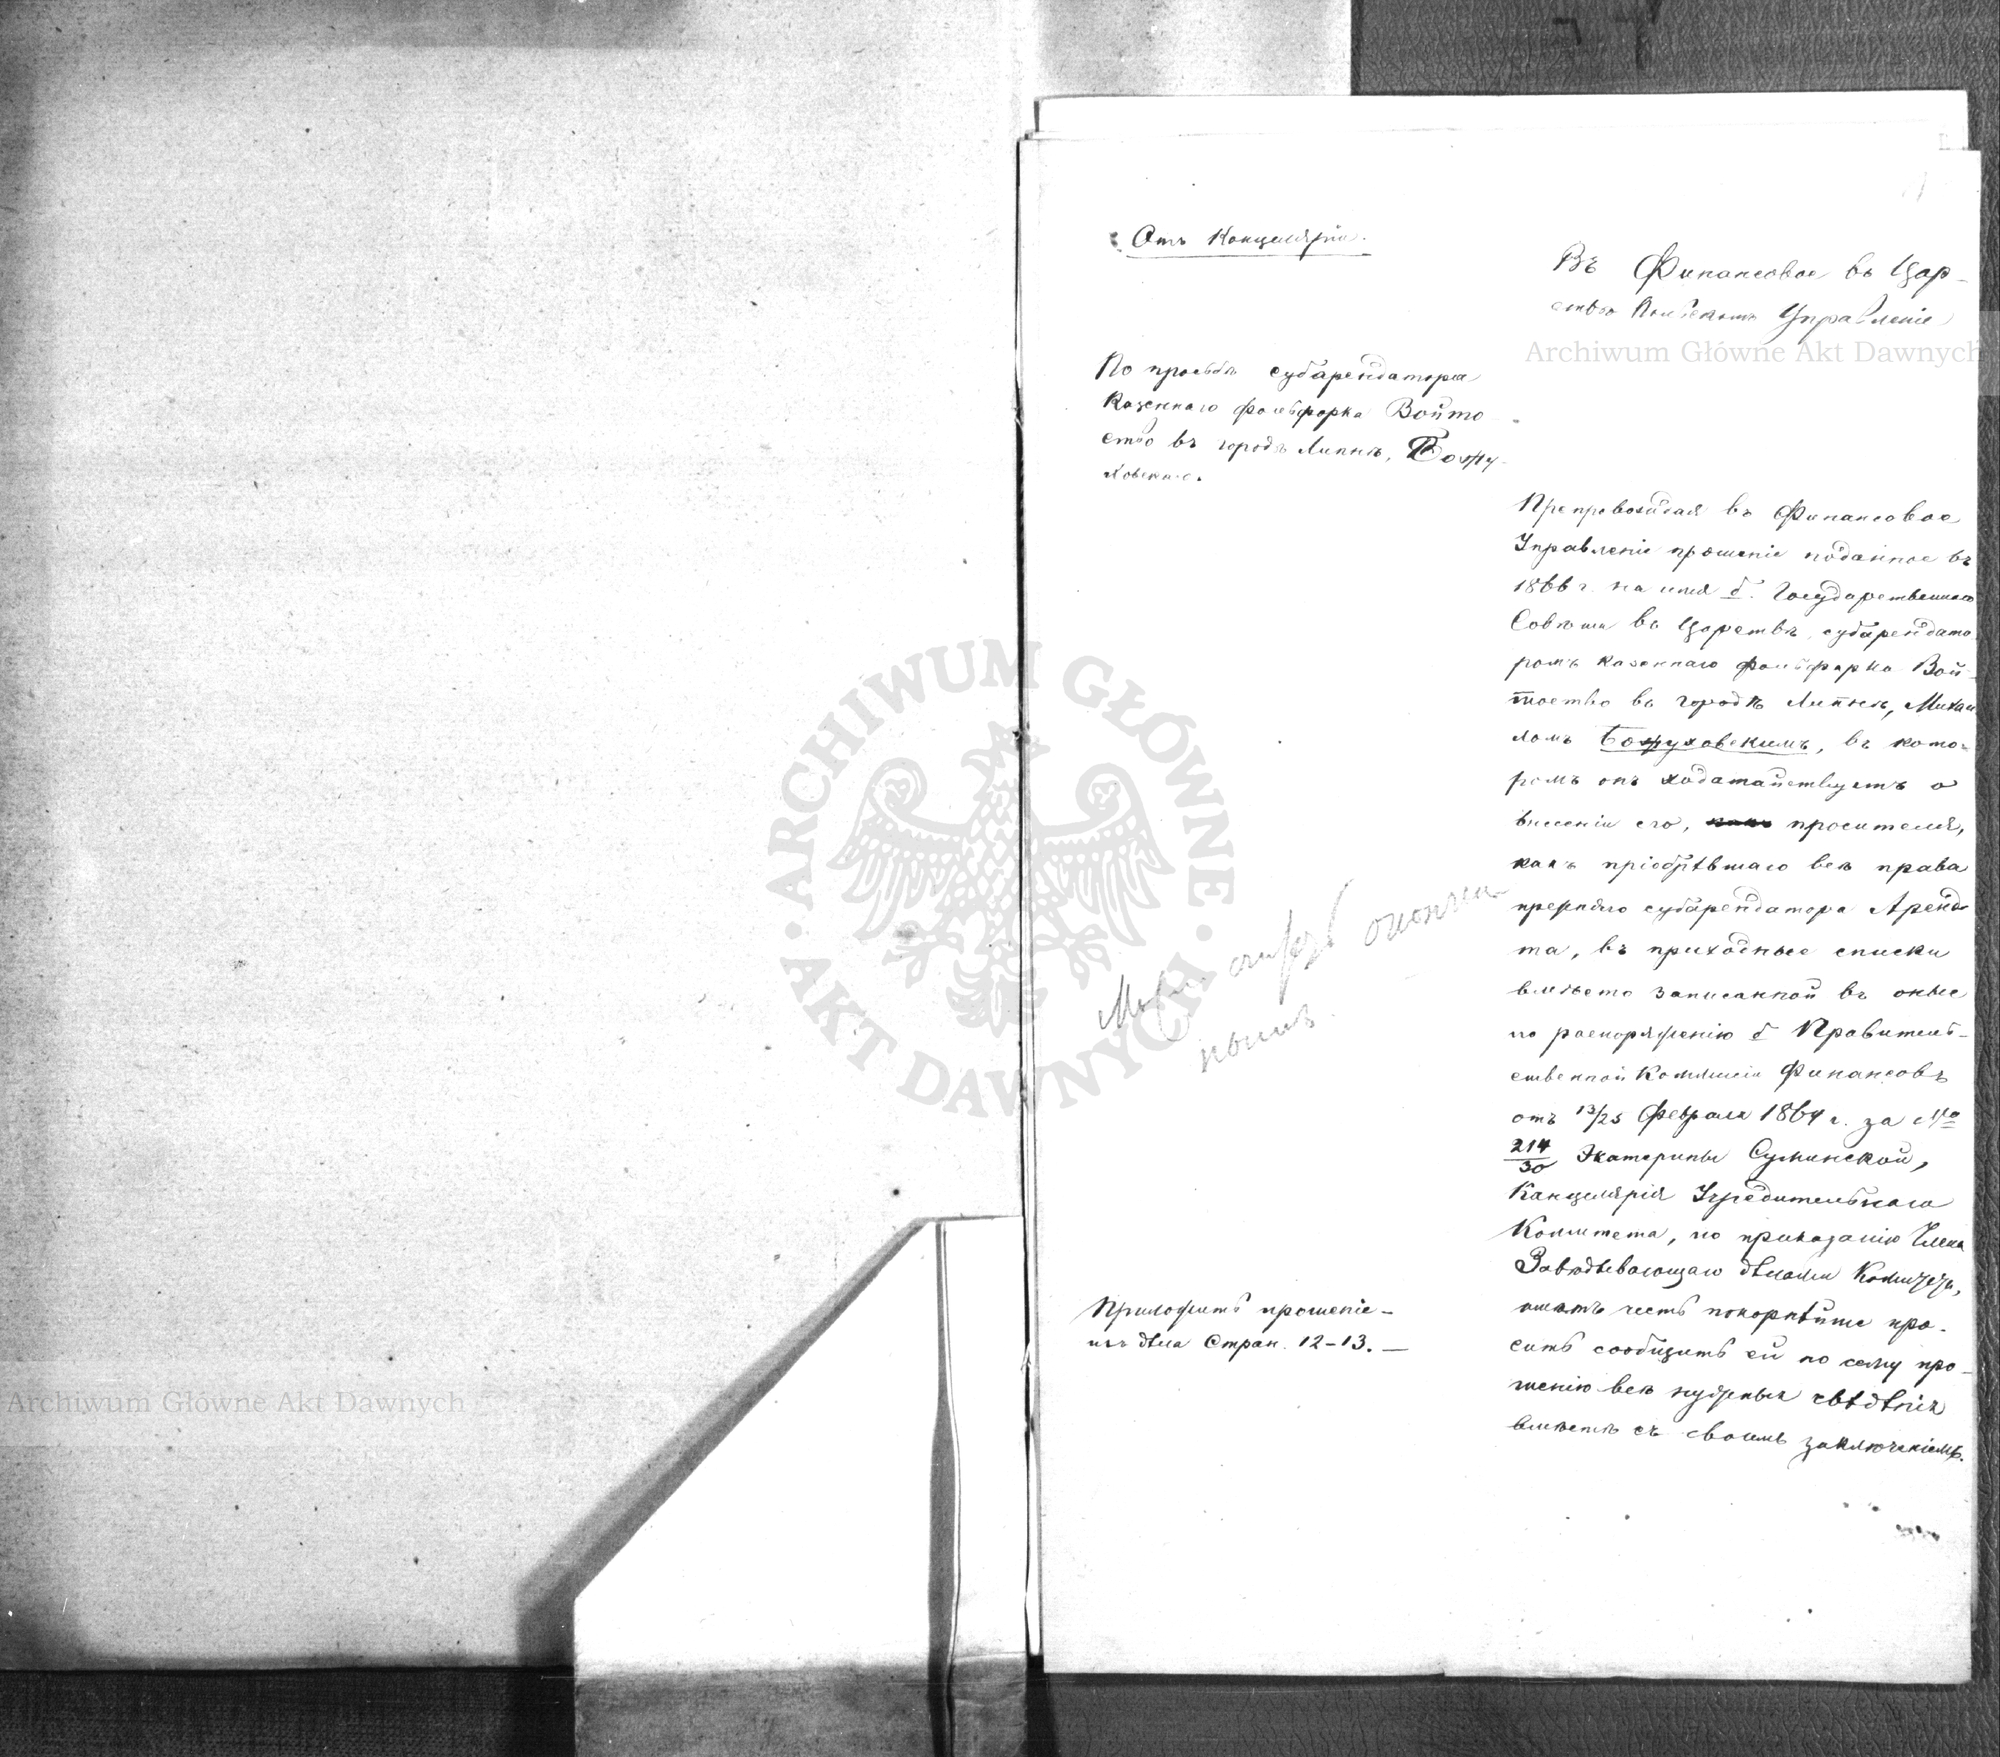 Отъ Канцеляріи.
Въ Финансовое въ Цар-
ствѣ Польскомъ Управленіе
По просьбѣ субарендатора
Казеннаго фольварка Войто-
ство въ городѣ Липнѣ, Божу-
ховскаго.
Препровождая въ Финансовое
Управленіе прошеніе поданное въ
1866 г. на имя б. Государственнаго
Совѣта въ Царствѣ, субарендато-
ромъ казеннаго фольварка Вой-
тоство въ городѣ Липнѣ, Михаи-
ломъ Божуховскимъ, въ кото-
ромъ онъ ходатайствуетъ о
внесеніи его, просителя,
какъ пріобрѣвшаго всѣ права
прежняго субарендатора Арнд-
та, въ приходные списки
вмѣсто записанной въ оные
по распоряженію б Правитель-
ственной Коммисіи Финансовъ
отъ 13/25 Февраля 1864 г. за №
214/30 Екатерины Суминской,
Канцелярія Учредительнаго
Комитета, по приказанію Члена
Завѣдывающаго дѣлами Комитета,
имѣетъ честь покорнѣйше про-
сить сообщить ей по сему про-
шенію всѣ нужныя свѣдѣнія
вмѣстѣ съ своимъ заключеніемъ.
Приложить прошеніе -
изъ дѣла Стран. 12-13. —
Archiwum Główne Akt Dawnych
ARCHIWUM GŁÓWNE
AKT DAWNYCH
Archiwum Główne Akt Dawnych